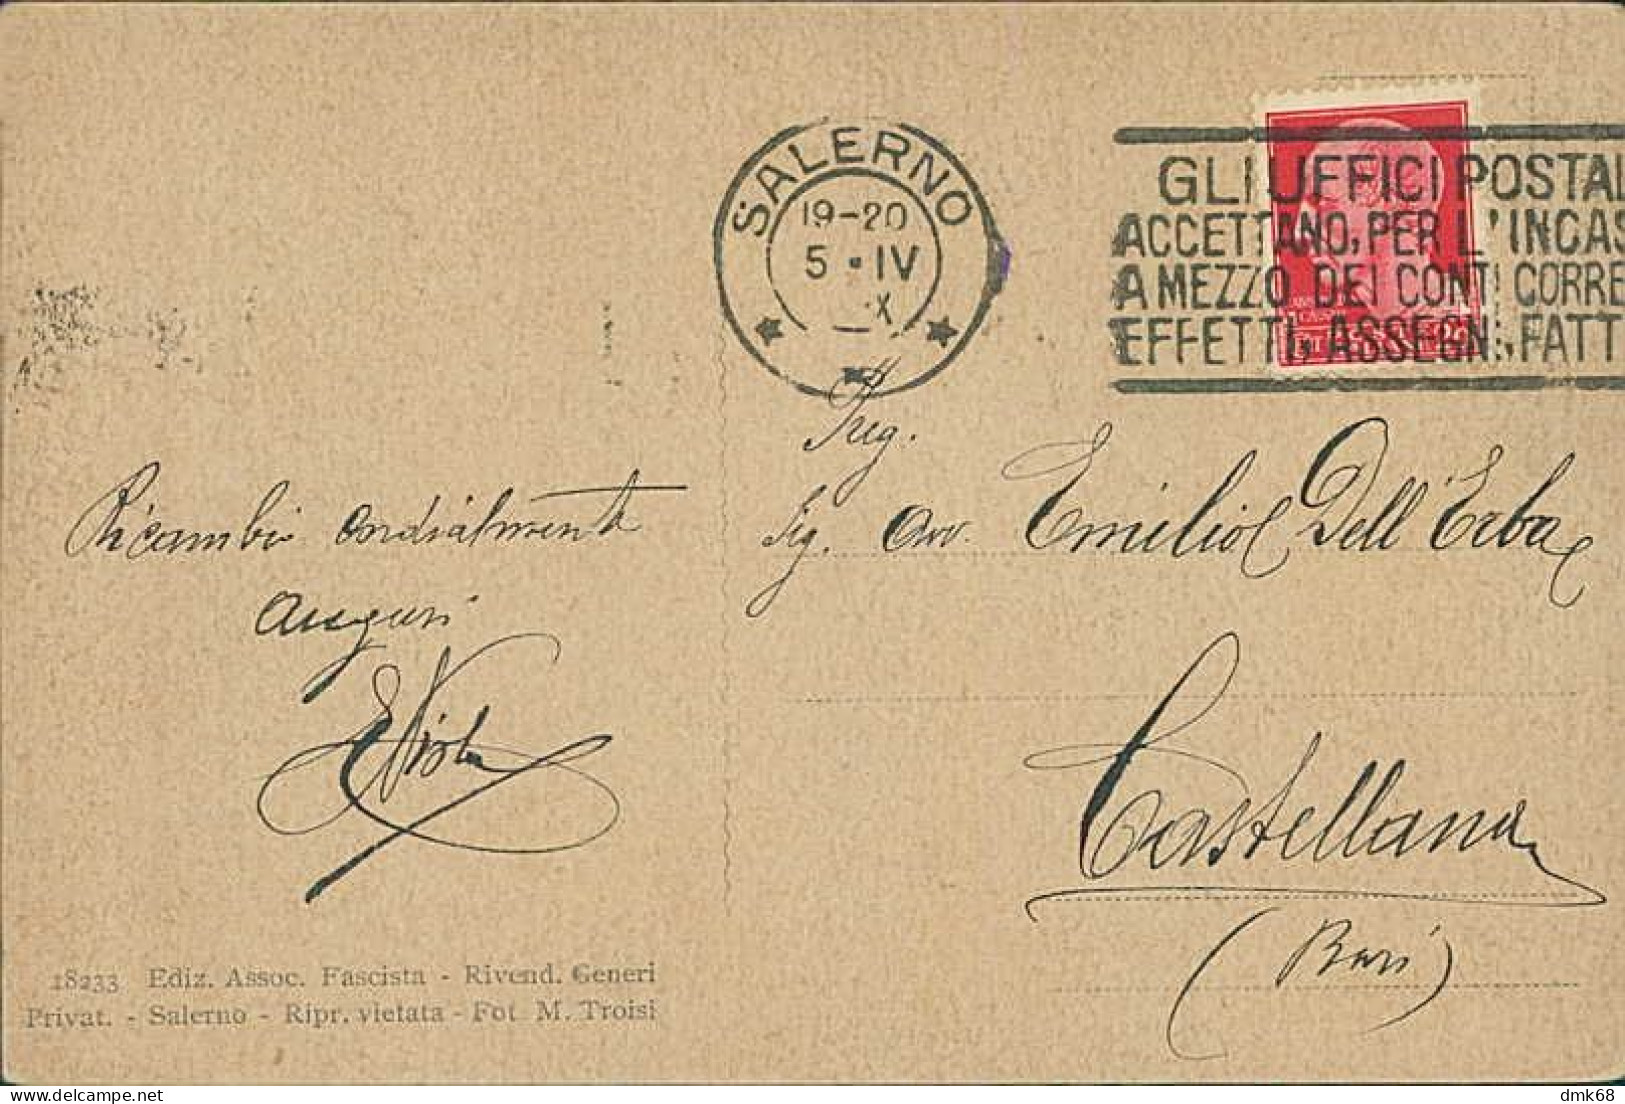 SALERNO
19-20
5 • IV
X
GLI UFFICI POSTAL
ACCETTANO, PER L'INCAS
A MEZZO DEI CONTI CORRE
EFFETTI, ASSEGNI, FATT
Preg.
Sig. Avv. Emilio Dell'Erba
Castellana
(Bari)
Ricambio cordialmente
auguri
18233 Ediz. Assoc. Fascista - Rivend. Generi
Privat. - Salerno - Ripr. vietata - Fot M. Troisi
dmk68